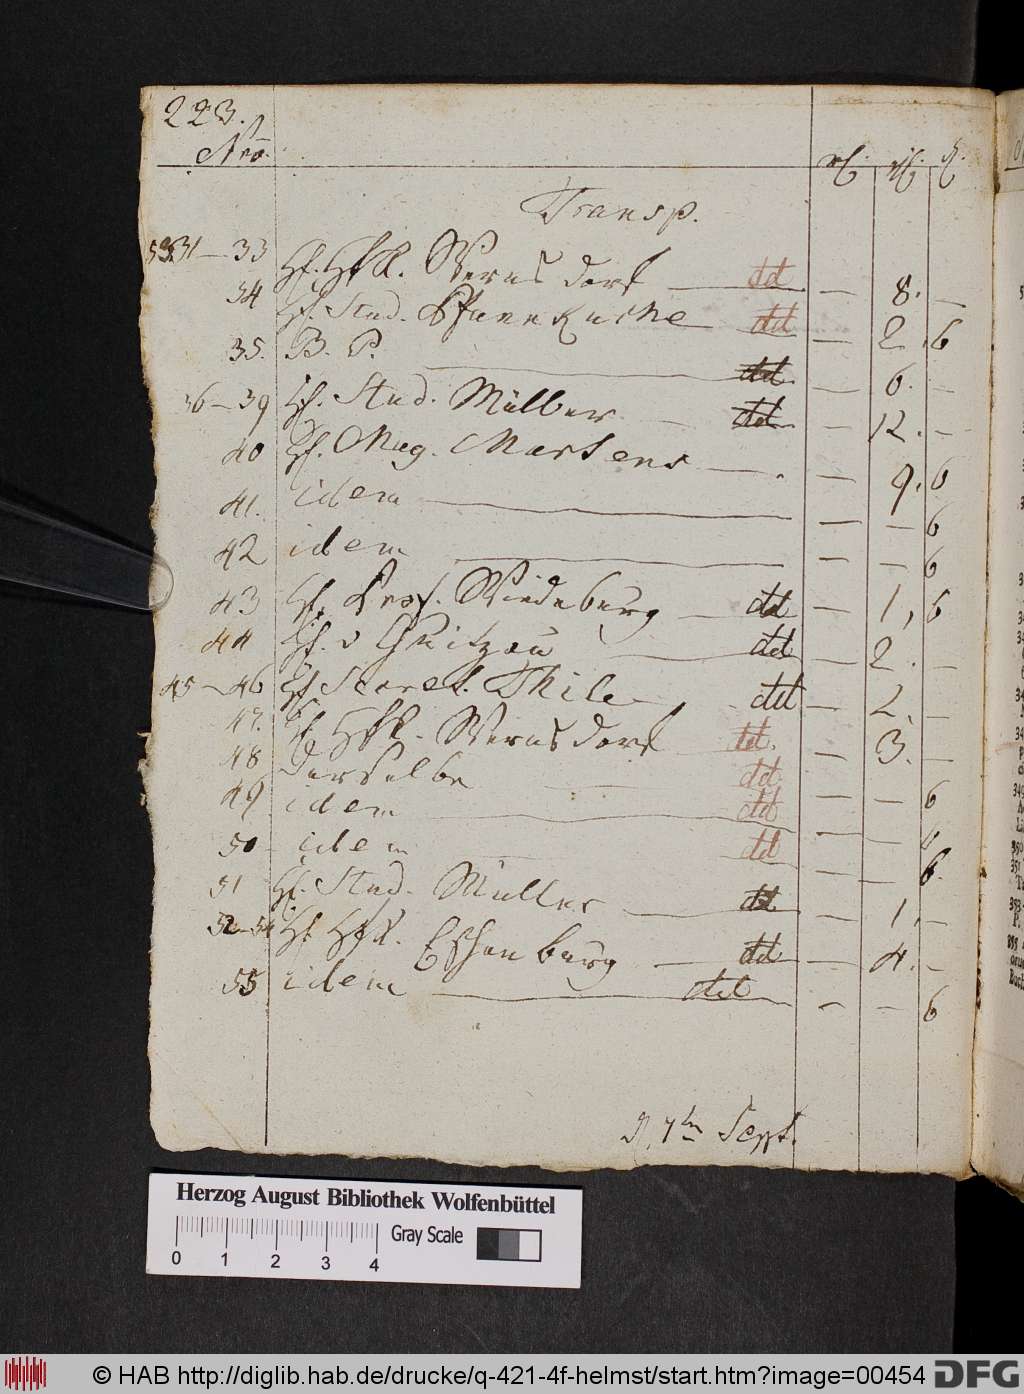 223.
Nro.
Transp.
5331–33 H. Wernsdorf dd — 8. —
34 H. Stud. Pfannkuche dd — 2. 6
35. B. P. dd — 6. —
36–39 H. Stud. Müller dd — 12. —
40 H. Mag. Martens — 9. 6
41. idem — — 6
42 idem — — 6
43 H. Prof. Wiedeburg dd — 1, 6
44 H. v dd — 2. —
45–46 H. Secret. Thile dd — 2. —
47. H. Wernsdorf dd — 3. —
48 Derselbe dd — — 6
49 idem dd — —
50 idem dd — — 6.
51 H. Stud. Müller dd — 1. —
52–54 H. Eschenburg dd — 4. —
55 idem dd — — 6
Sept.
Herzog August Bibliothek Wolfenbüttel
Gray Scale
0 1 2 3 4
© HAB http://diglib.hab.de/drucke/q-421-4f-helmst/start.htm?image=00454
DFG